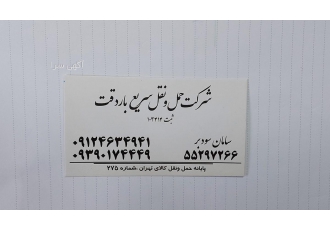 آگهی سر
شرکت حمل و نقل سریع بار دقت
ثبت ۱۰۳۳۱۲
سامان سودبر
۰۹۱۲۴۶۳۴۹۴۱
۵۵۲۹۷۲۶۶
۰۹۳۹۰۱۷۴۴۴۹
پایانه حمل ونقل کالای تهران ،شماره ۲۷۵